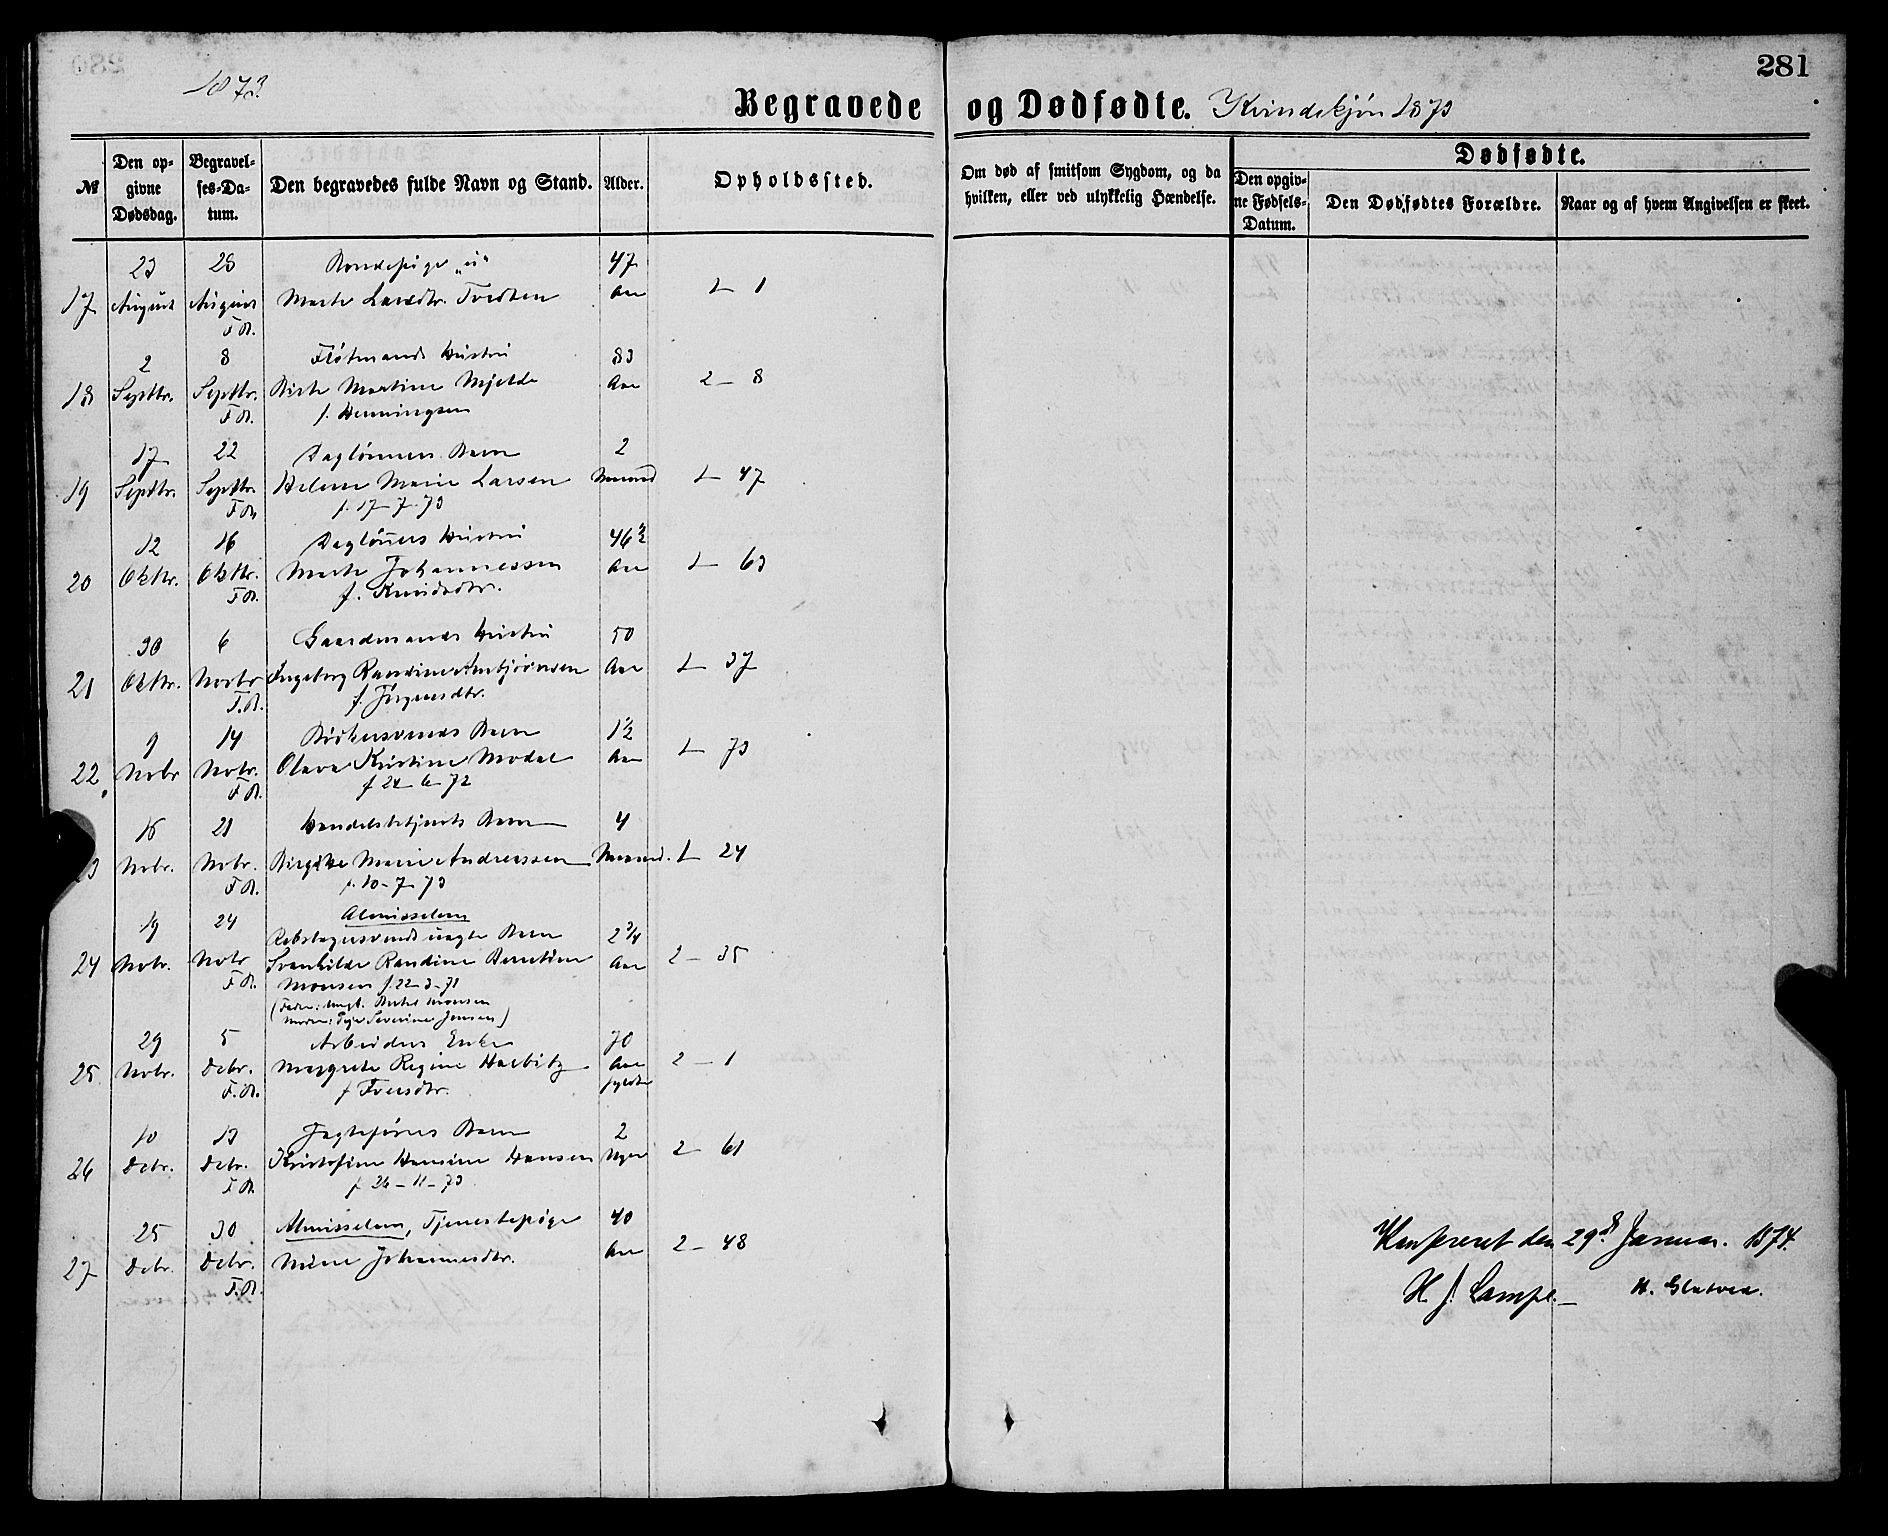 281
1873.
Begravede og Dødfødte. Kvindekjøn 1873
№
Den opgivne Dødsdag.
Begravelses-Datum.
Den begravedes fulde Navn og Stand.
Alder.
Opholdssted.
Om død af smitsom Sygdom, og da hvilken, eller ved ulykkelig Hændelse.
Dødfødte.
Den opgivne Fødsels-Datum.
Den Dødfødtes Forældre.
Naar og af hvem Angivelsen er skeet.
23 28 Bondepige 47
17 August August Marte Larsdtr. Tvedten Aar 1 – 1
F.R.
2 8 Hustru 83
18 Septbr. Septbr. Birte Martine Mjelde Aar 2 – 8
F.R. f. Henningsen
17 22 Daglønners Barn 2
19 Septbr. Septbr. Helene Marie Larsen Maaned 1 – 47
F.R. f. 17–7–73
12 16 Dagløners Hustru 46 1/2
20 Oktbr. Oktbr. Marte Johannessen Aar 1 – 63
F.R. f. Knudsdtr.
30 6 Gaardmands Hustru 50
21 Oktbr. Novbr Ingeborg Randine Arnbjørnsen Aar 1 – 37
F.R. f. Jørgensdtr.
9 14 Barn 1 1/2
22. Novbr Novbr. Olava Kristine Modal Aar 1 – 73
F.R. f 24–6–72
16 21 Handelsbetjents Barn 4
3 Novbr. Novbr. Birgitte Marie Andreassen Maaned. 1 – 24
F.R. f. 10–7–73
19 24 Almisselem
Rebslagersvends uægte Barn 2 3/4
24 Novbr. Novbr Svanhilde Randine Berntine Aar 2 – 35
F.R. Monsen f. 22–3–71
(Fader: Ungk. Monsen
Moder: Pige Severine Jensen)
29 5 Arbeiders Enke 70
25 Novbr. Debr. Margrete Regine Harbitz Aar 2 – 1
F.R. f Iversdtr. fyldte
10 13 Barn 2
26 Debr. Debr. Kristofine Hansine Hansen Uger 2 – 61
F.R. f 26–11–73
25 30 Almisselem, Tjenestepige 40
27 Debr. Debr. Johannesdtr. Aar 2 – 48
F.R.
Konfereret den 29de Januar. 1874.
H. J. Lampe.–